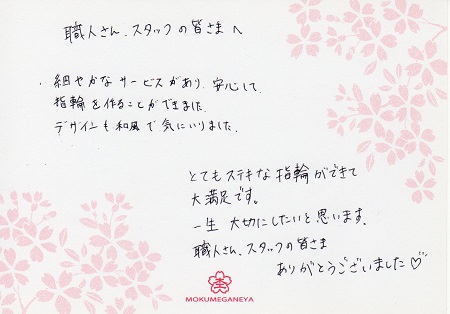 職人さん、スタッフの皆さまへ
・細やかなサービスがあり、安心して、
指輪を作ることができました。
デザインも和風で気にいりました。
とてもステキな指輪ができて
大満足です。
一生大切にしたいと思います。
職人さん、スタッフの皆さま
ありがとうございました♡
MOKUMEGANEYA